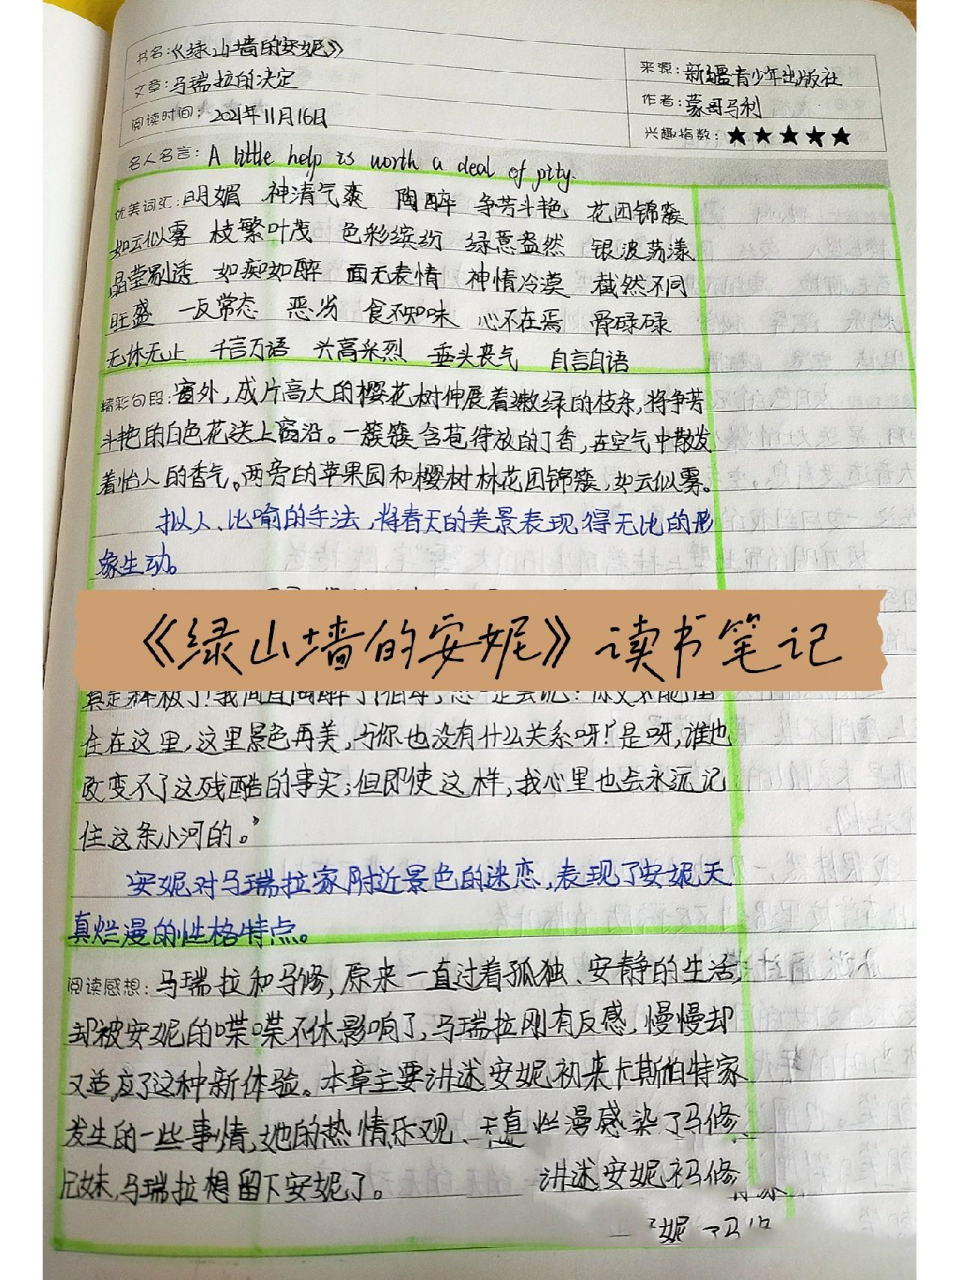 书名:《绿山墙的安妮》
来源: 新疆青少年出版社
文章: 马瑞拉的决定
作者: 蒙哥马利
阅读时间: 2021年11月16日
兴趣指数: ★★★★★
名人名言: A little help is worth a deal of pity.
优美词汇: 明媚 神清气爽 陶醉 争芳斗艳 花团锦簇
如云似雾 枝繁叶茂 色彩缤纷 绿意盎然 银波荡漾
晶莹剔透 如痴如醉 面无表情 神情冷漠 截然不同
旺盛 一反常态 恶劣 食不知味 心不在焉 骨碌碌
无休无止 千言万语 兴高采烈 垂头丧气 自言自语
精彩句段: 窗外,成片高大的樱花树伸展着嫩绿的枝条,将争芳
斗艳的白色花送上窗沿。一簇簇含苞待放的丁香,在空气中散发
着怡人的香气。两旁的苹果园和樱树林花团锦簇,如云似雾。
拟人、比喻的手法,将春天的美景表现得无比的形
象生动。
《绿山墙的安妮》读书笔记
住在这里,这里景色再美,与你也没有什么关系呀!'是呀,谁也
改变不了这残酷的事实;但即使这样,我心里也会永远记
住这条小河的。”
安妮对马瑞拉家附近景色的迷恋,表现了安妮天
真烂漫的性格特点。
阅读感想: 马瑞拉和马修,原来一直过着孤独、安静的生活,
却被安妮的喋喋不休影响了,马瑞拉刚有反感,慢慢却
又适应了这种新体验。本章主要讲述安妮初来卡斯伯特家
发生的一些事情,她的热情乐观、天真烂漫感染了马修
兄妹,马瑞拉想留下安妮了。
讲述安妮